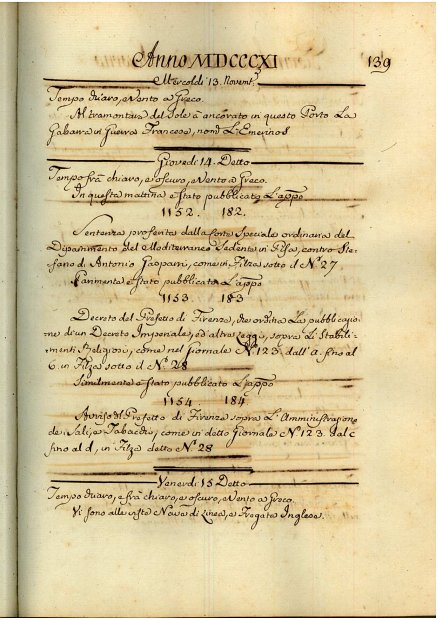 Anno MDCCCXI 139
Mercoldi 13. Novemb.
Tempo chiaro, e Vento a Greco.
Al tramontare del Sole è ancorato in questo Porto La
Gabarra in Guerra Francese, nom.ª L'Emerinos
Giovedi 14. Detto
Tempo frà chiaro, e oscuro, e Vento a Greco.
In questa mattina è stato pubblicato L'app.º
1152. 182.
Sentenza proferita dalla Corte Speciale ordinaria del
Dipartimento del Mediterraneo Sedente in Pisa, contro Ste-
fano di Antonio Gasparri, come in Filza sotto il N.º 27
Parimente è stato pubblicato L'app.º
1153. 183
Decreto del Prefetto di Firenze, che ordina La pubblicazio-
ne d'un Decreto Imperiale, ed altre Leggi, sopra Li Stabili-
menti Religiosi, come nel Giornale N.º 123. dall' A. fino al
6. in Filza sotto il N.º 28
Similmente è stato pubblicato L'app.º
1154. 184
Avviso del Prefetto di Firenze sopra L'Amministrazione
de Sali, e Tabacchi, come in detto Giornale N.º 123. dal C
fino al d, in Filza detto N.º 28
Venerdi 15 Detto
Tempo chiaro, e frà chiaro, e oscuro, e Vento a Greco.
Vi sono alle viste Nave di Linea, e Fregata Inglese.